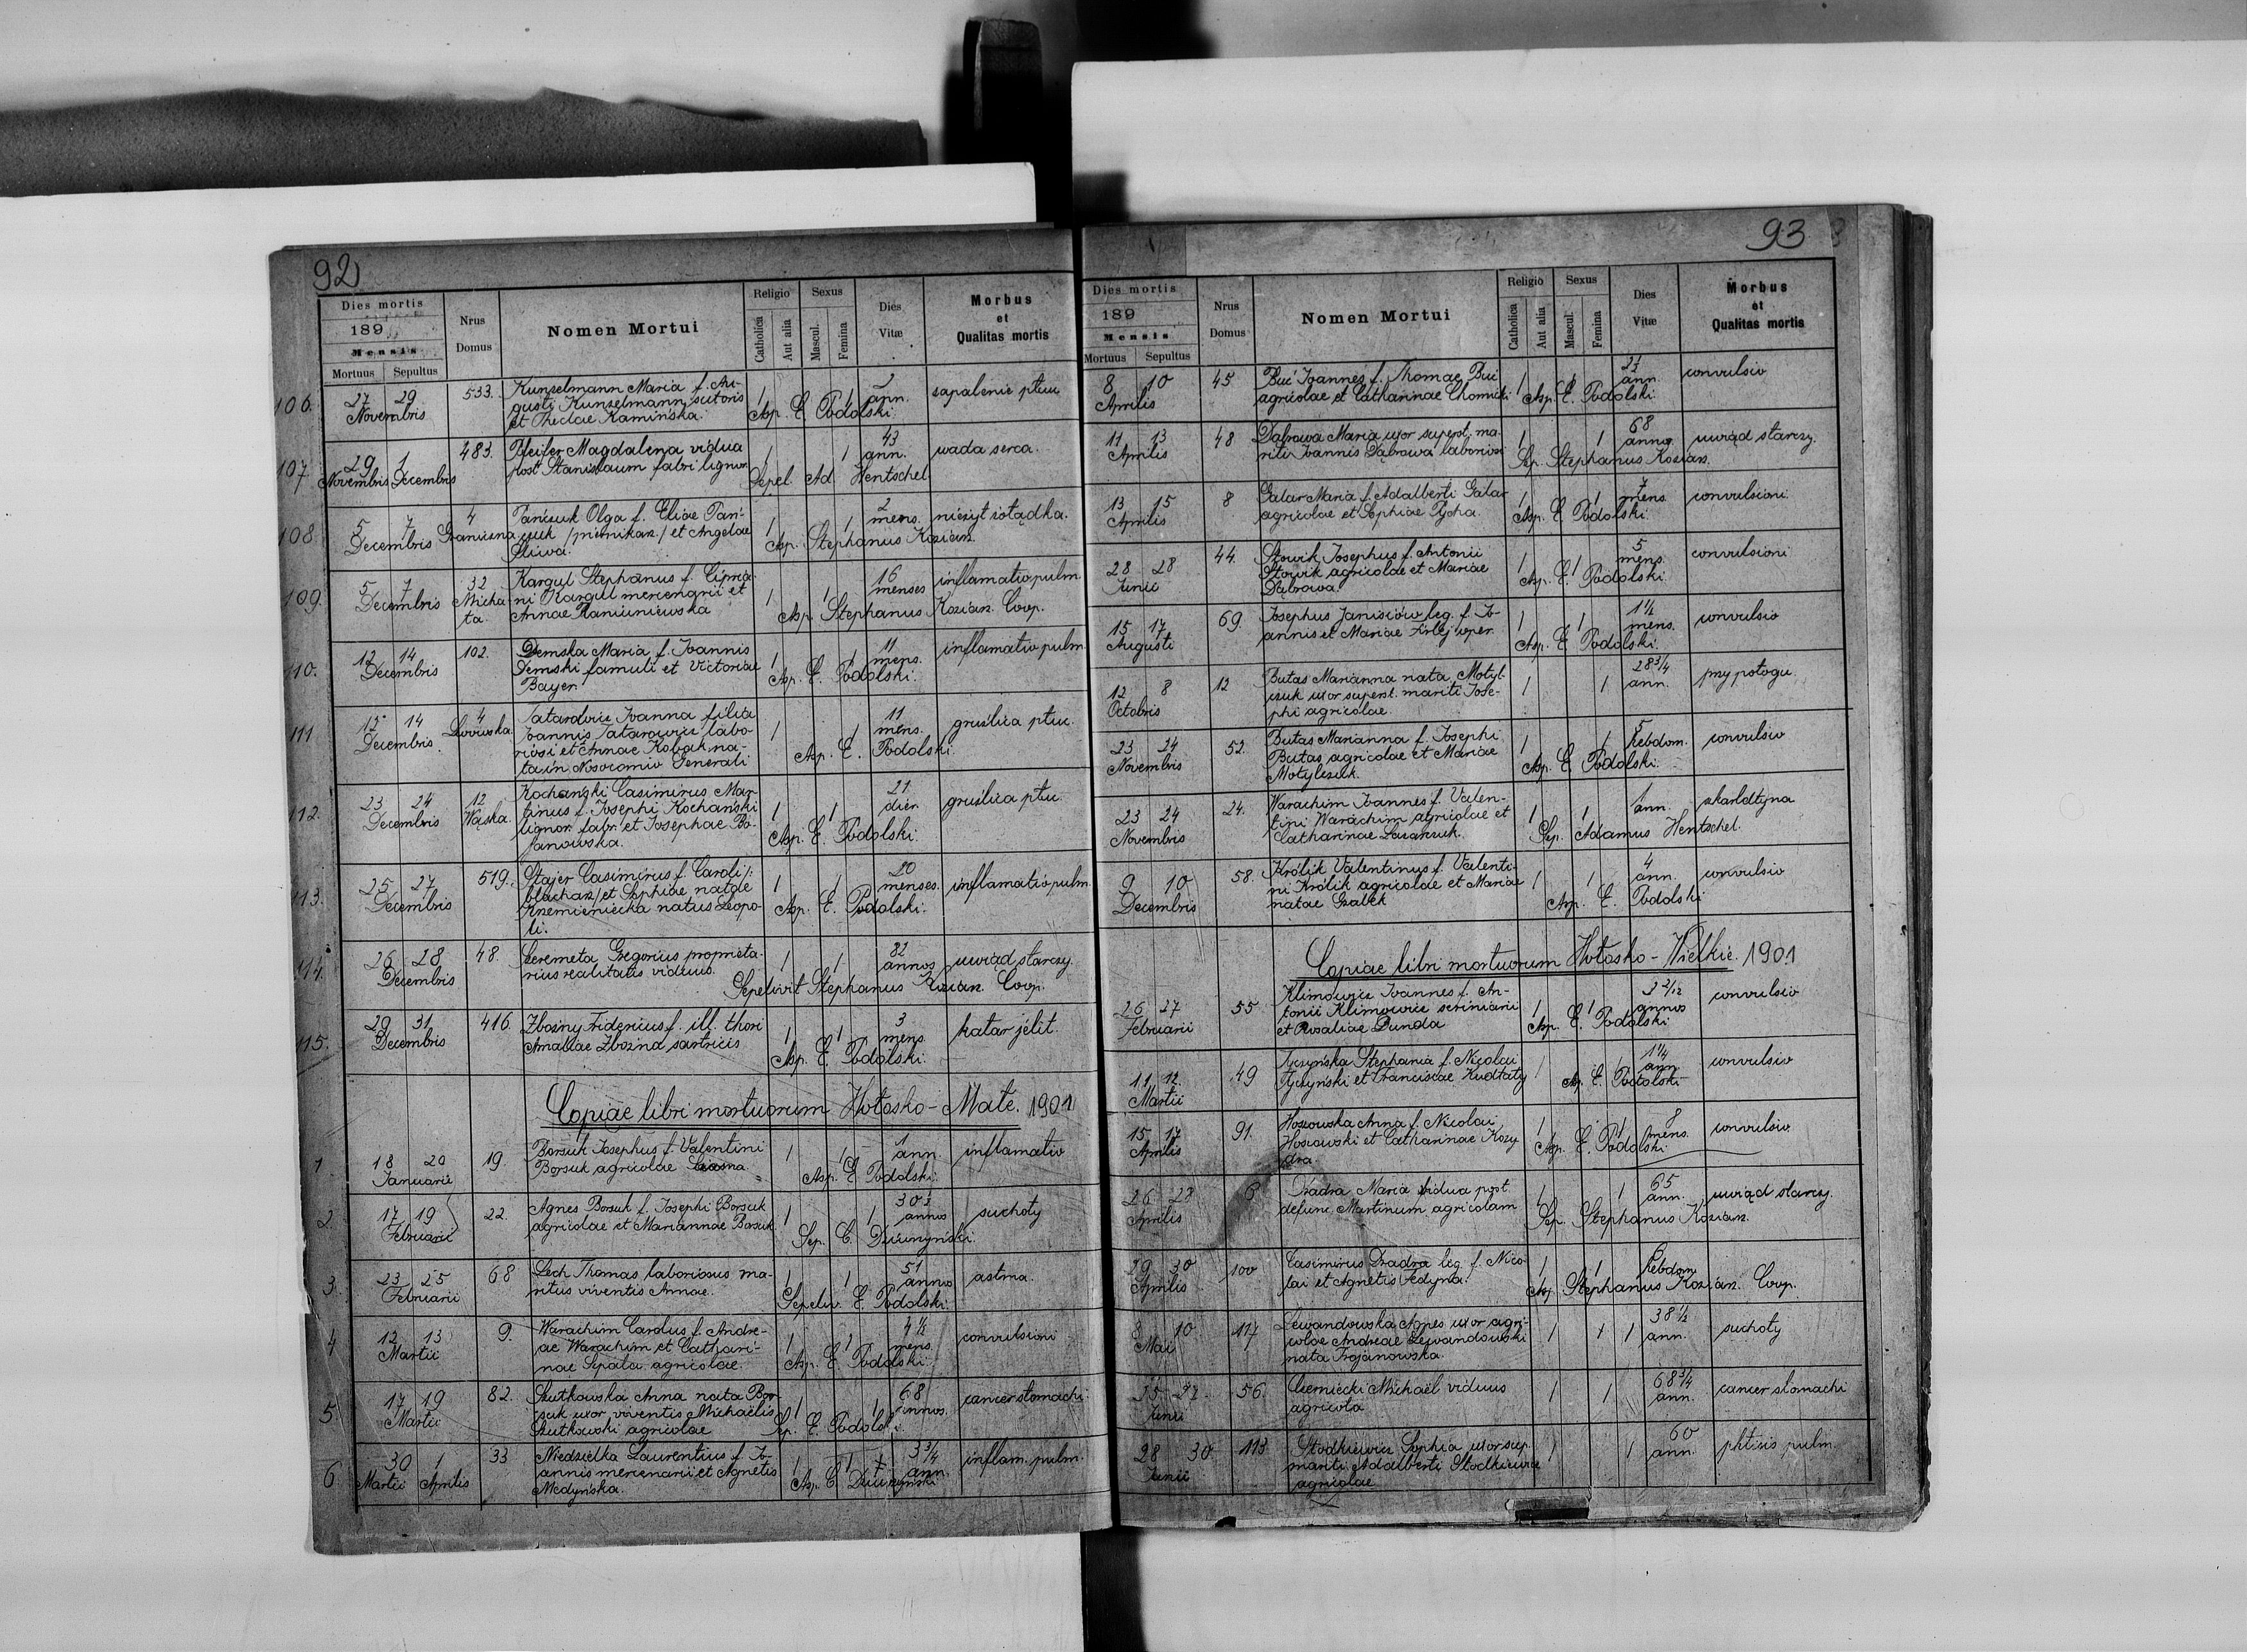 92
Dies mortis
189
Mensis
Mortuus Sepultus
Nrus Domus
Nomen Mortui
Religio
Catholica Aut alia
Sexus
Mascul. Femina
Dies Vitæ
Morbus et Qualitas mortis
106. 27 29 Novembris 533. Kunzelmann Maria f. Au-
gusti Kunzelmann sutoris
et Theclae Kamińska. 1 1 ann. zapalenie płuc
Asp. E. Podolski.
107. 29 Novembris 1 Decembris 483. Pfeifer Magdalena vidua
post Stanislaum fabri lignar. 1 1 43 ann. wada serca.
Sepel. Ad. Hentschel
108. 5 7 Decembris 4 Graniczna Pańczuk Olga f. Eliae Pań-
czuk et Angelae
Śliwa. 1 1 2 mens. nieżyt żołądka.
Asp. Stephanus Kozian.
109. 5 7 Decembris 32 Micha-
ta. Kargul Stephanus f. Cipria-
ni Kargul mercenarii et
Annae Raniewiewska 1 1 16 menses inflamatio pulm
Asp. Stephanus Kozian. Coop.
110. 12 14 Decembris 102. Demska Maria f. Ioannis
Demski famuli et Victoriae
Bayer. 1 1 11 mens. inflamatio pulm
Asp. E. Podolski.
111 12 14 Decembris. 4 Lwowska. Tatarowicz Ioanna filia
Ioannis Tatarowicz labo-
riosi et Annae Kowak na-
ta in Nosocomio Generali 1 1 11 mens. gruźlica płuc.
Asp. E. Podolski.
112. 23 24 Decembris 12 Wąska. Kochański Casimirus Mar-
tinus f. Iosephi Kochański
lignor. fabr. et Iosephae Bo-
janowska. 1 1 21 dier. gruźlica płuc.
Asp. E. Podolski.
113. 25 27 Decembris 519. Stajer Casimirus f. Caroli /:
blacharz/ et Sophiae natae
Krzemieniecka natus Leopo-
li. 1 1 20 menses. inflamatio pulm.
Asp. E. Podolski.
114. 26 28 Decembris 48. Szeremeta Gregorius proprieta-
rius realitatis viduus. 1 1 82 annos uwiąd starczy.
Sepelivit Stephanus Kozian. Coop.
115. 29 31 Decembris 416. Zbożny Fidericus f. ill. thori
Amaliae Zbożna sartricis 1 1 3 mens. katar jelit.
Asp. E. Podolski.
Copiae libri mortuorum Hołosko-Małe. 1901
1. 18 20 Januarii 19. Borsuk Iosephus f. Valentini
Borsuk agricolae 1 1 1 ann. inflamatio
Asp. E. Podolski.
2. 17 19 Februarii 22. Agnes Borsuk f. Iosephi Borsuk
agricolae et Mariannae Borsuk 1 1 annos suchoty
Sep. C. Dziurzyński.
3. 23 25 Februarii 68 Lech Thomas laboriosus ma-
ritus viventis Annae. 1 1 51 annos astma.
Sepeliv. E. Podolski.
4 12 13 Martii 9. Warachim Carolus f. Andre-
ae Warachim et Cathari-
nae Szpala agricolae. 1 1 4½ mens. convulsioni
Asp. E. Podolski.
5. 17 19 Martii 82. Szutkowska Anna nata Bor-
suk uxor viventis Michaëlis
Szutkowski agricolae 1 1 68 annos. cancer stomachi.
Sep. E. Podolski.
6 30 Martii 1 Aprilis 33 Niedzielka Laurentius f. Io-
annis mercenarii et Agnetis
Medyńska. 1 1 3¾ ann. inflam. pulm.
Asp. C. Dziurzyński
93
Dies mortis
189
Mensis
Mortuus Sepultus
Nrus Domus
Nomen Mortui
Religio
Catholica Aut alia
Sexus
Mascul. Femina
Dies Vitæ
Morbus et Qualitas mortis
8 10 Aprilis 45 Buć Ioannes f. Thomae Buć
agricolae et Catharinae Chomicki 1 1 ann. convulsio
Asp. E. Podolski.
11 13 Aprilis 48 Dąbrowa Maria uxor superst. ma-
riti Ioannis Dąbrowa laboriosi 1 1 68 annos. uwiąd starczy.
Sep. Stephanus Kozian.
13 15 Aprilis 8 Galar Maria f. Adalberti Galar
agricolae et Sophiae Pycha. 1 1 7 mens. convulsioni
Asp. E. Podolski.
28 28 Iunii 44. Słowik Iosephus f. Antonii
Słowik agricolae et Mariae
Dąbrowa. 1 1 5 mens. convulsioni
Asp. E. Podolski.
15 17 Augusti 69. Iosephus Janisiów leg. f. Io-
annis et Mariae Firlej oper. 1 1 1½ mens. convulsio
Asp. E. Podolski.
12 8 Octobris 12 Butas Marianna nata Motyl-
czuk uxor superst. mariti Iose-
phi agricolae. 1 1 28¾ ann. przy połogu.
23 24 Novembris 52. Butas Marianna f. Iosephi
Butas agricolae et Mariae
Motylczuk. 1 1 5 hebdom. convulsio
Asp. E. Podolski.
23 24 Novembris 24. Warachim Ioannes f. Valen-
tini Warachim agricolae et
Catharinae 1 1 1 ann. szkarlatyna
Sep. Adamus Hentschel.
9 10 Decembris 58. Królik Valentinus f. Valenti-
ni Królik agricolae et Mariae
natae 1 1 4 ann. convulsio
Asp. E. Podolski
Copiae libri mortuorum Hołosko-Wielkie. 1901
26 27 Februarii 55 Klimowicz Ioannes f. An-
tonii Klimowicz scriniarii
et Rosaliae Dunda 1 1 3 2/12 annos convulsio
Asp. E. Podolski
11 12. Martii 49 Tyczyńska Stephania f. Nicolai
Tyczyński et Franciscae Kudłaty 1 1¼ ann convulsio
Asp. E. Podolski
15 17 Aprilis 91. Hoszowska Anna f. Nicolai
Hoszowski et Catharinae Kozy
dra. 1 1 8 mens. convulsio.
Asp. E. Podolski
26 28 Aprilis 6 Dradra Maria vidua post
defunc. Martinum agricolam 1 1 65 ann. uwiąd starczy.
Sep. Stephanus Kozian.
29 30 Aprilis 100 Casimirus Dradra leg. f. Nico-
lai et Agnetis Fedyna. 1 1 6 hebdom
Asp. Stephanus Kozian. Coop.
8 10 Mai 117 Lewandowska Agnes uxor agri-
colae Andreae Lewandowski
nata Trojanowska. 1 1 1 38½ ann. suchoty
Iunii 56. Czerniecki Michaël viduus
agricola 1 1 68¾ ann. cancer stomachi
28 30 Iunii 113 Słodkiewicz Sophia uxor sup.
mariti Adalberti Słodkiewicz
agricolae 1 1 60 ann. phtisis pulm.